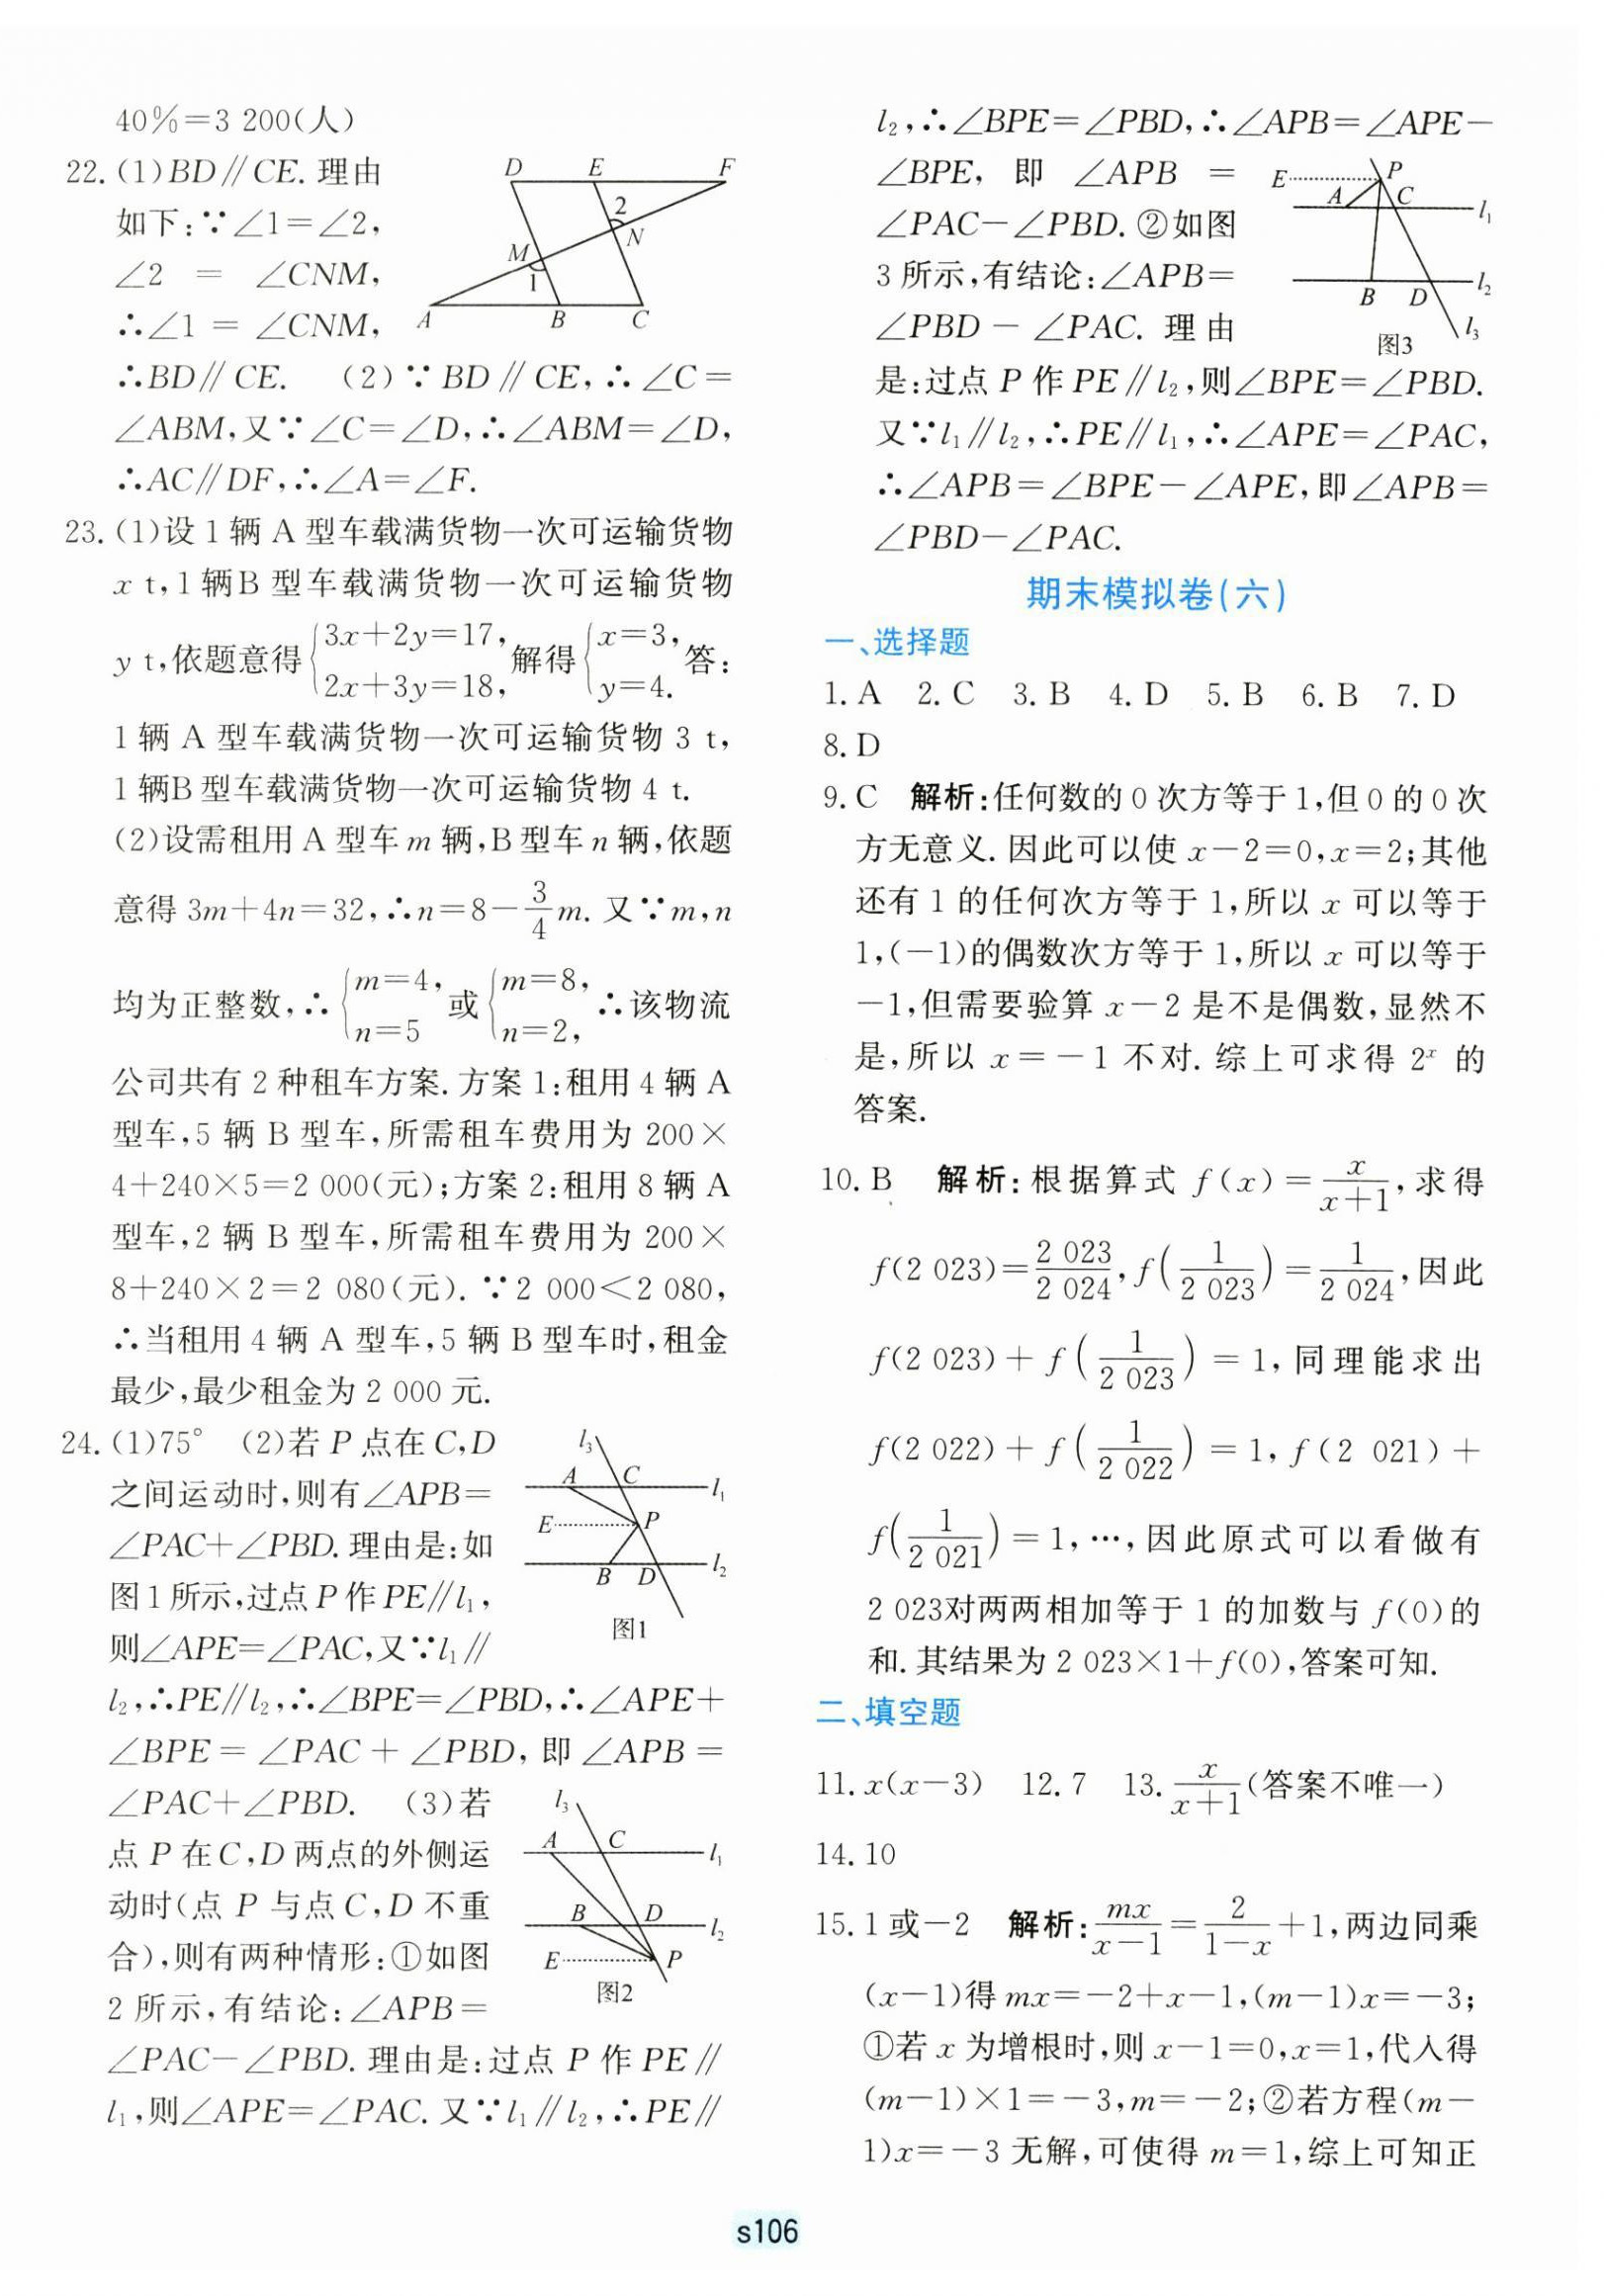 40%=3 200(人)
22.(1)BD∥CE.理由
如下:∵∠1=∠2,
∠2 = ∠CNM,
∴∠1 = ∠CNM,
D E F
2
N
M
1
A B C
∴BD∥CE. (2)∵BD∥CE,∴∠C=
∠ABM,又∵∠C=∠D,∴∠ABM=∠D,
∴AC∥DF,∴∠A=∠F.
23.(1)设1辆A型车载满货物一次可运输货物
x t,1辆B型车载满货物一次可运输货物
y t,依题意得{3x+2y=17, 2x+3y=18, 解得{x=3, y=4. 答:
1辆A型车载满货物一次可运输货物3 t,
1辆B型车载满货物一次可运输货物4 t.
(2)设需租用A型车m辆,B型车n辆,依题
意得3m+4n=32,∴n=8-3/4m.又∵m,n
均为正整数,∴{m=4, n=5 或{m=8, n=2, ∴该物流
公司共有2种租车方案.方案1:租用4辆A
型车,5辆B型车,所需租车费用为200×
4+240×5=2 000(元);方案2:租用8辆A
型车,2辆B型车,所需租车费用为200×
8+240×2=2 080(元).∵2 000<2 080,
∴当租用4辆A型车,5辆B型车时,租金
最少,最少租金为2 000元.
24.(1)75° (2)若P点在C,D
之间运动时,则有∠APB=
∠PAC+∠PBD.理由是:如
图1所示,过点P作PE∥l₁,
则∠APE=∠PAC,又∵l₁∥
l₃
A C l₁
E P
B D l₂
图1
l₂,∴PE∥l₂,∴∠BPE=∠PBD,∴∠APE+
∠BPE=∠PAC+∠PBD,即∠APB=
∠PAC+∠PBD. (3)若
点P在C,D两点的外侧运
动时(点P与点C,D不重
合),则有两种情形:①如图
2所示,有结论:∠APB=
l₃
A C l₁
B D l₂
E P
图2
∠PAC-∠PBD.理由是:过点P作PE∥
l₁,则∠APE=∠PAC.又∵l₁∥l₂,∴PE∥
l₂,∴∠BPE=∠PBD,∴∠APB=∠APE-
∠BPE,即∠APB=
∠PAC-∠PBD.②如图
3所示,有结论:∠APB=
∠PBD-∠PAC.理由
E P
A C l₁
B D l₂
l₃
图3
是:过点P作PE∥l₂,则∠BPE=∠PBD.
又∵l₁∥l₂,∴PE∥l₁,∴∠APE=∠PAC,
∴∠APB=∠BPE-∠APE,即∠APB=
∠PBD-∠PAC.
期末模拟卷(六)
一、选择题
1.A 2.C 3.B 4.D 5.B 6.B 7.D
8.D
9.C 解析:任何数的0次方等于1,但0的0次
方无意义.因此可以使x-2=0,x=2;其他
还有1的任何次方等于1,所以x可以等于
1,(-1)的偶数次方等于1,所以x可以等于
-1,但需要验算x-2是不是偶数,显然不
是,所以x=-1不对.综上可求得2ˣ的
答案.
10.B 解析:根据算式f(x)=x/(x+1),求得
f(2 023)=2 023/2 024,f(1/2 023)=1/2 024,因此
f(2 023)+f(1/2 023)=1,同理能求出
f(2 022)+f(1/2 022)=1,f(2 021)+
f(1/2 021)=1,…,因此原式可以看做有
2 023对两两相加等于1的加数与f(0)的
和.其结果为2 023×1+f(0),答案可知.
二、填空题
11.x(x-3) 12.7 13.x/(x+1)(答案不唯一)
14.10
15.1或-2 解析:mx/(x-1)=2/(1-x)+1,两边同乘
(x-1)得mx=-2+x-1,(m-1)x=-3;
①若x为增根时,则x-1=0,x=1,代入得
(m-1)×1=-3,m=-2;②若方程(m-
1)x=-3无解,可使得m=1,综上可知正
s106